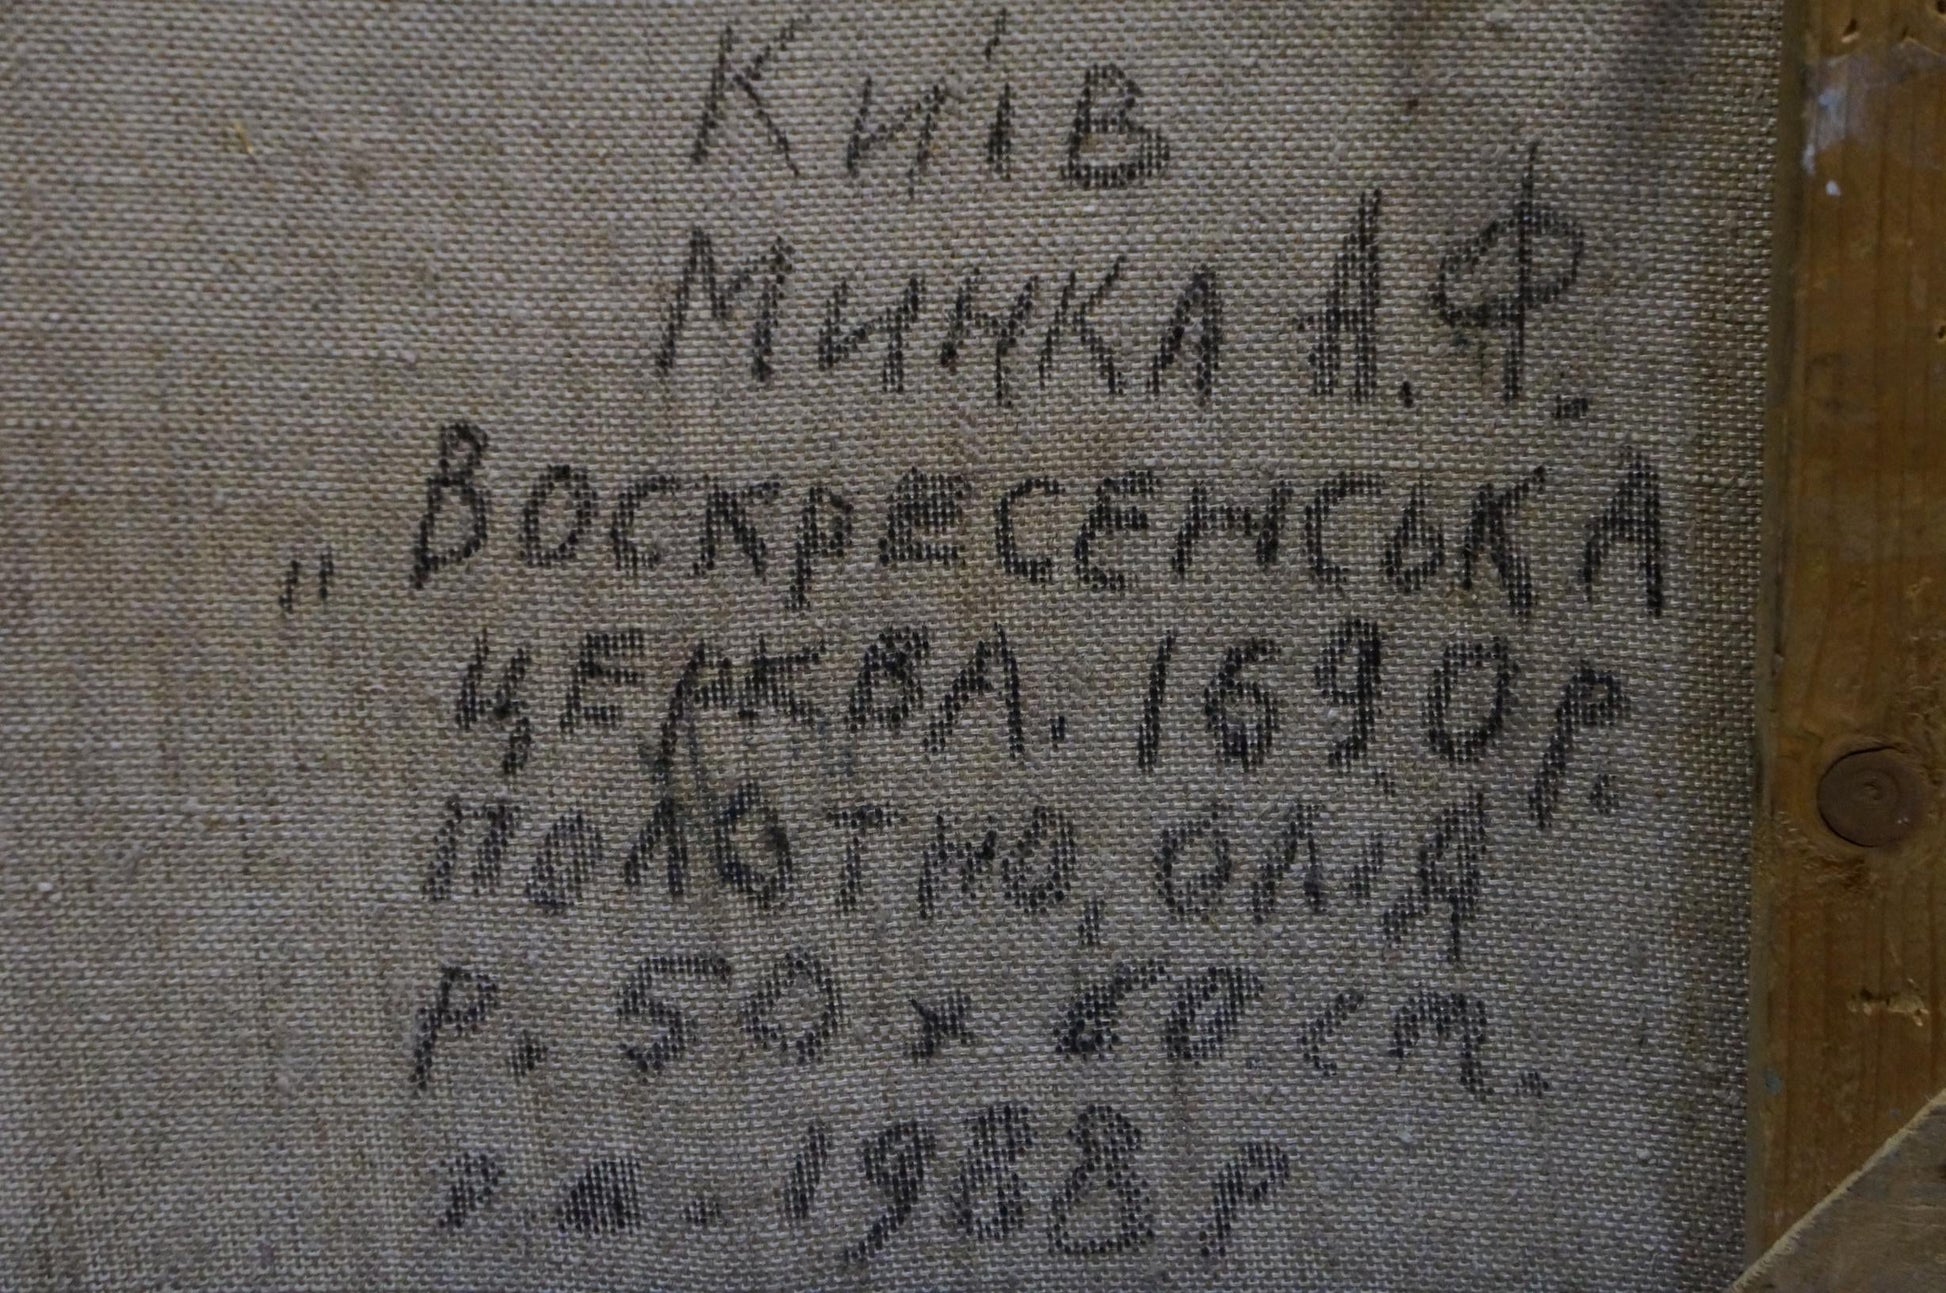 Київ
Минка А.Ф.
„Воскресенська
церква. 1690 р.
полотно, олія
Р. 50 х 60 см.
1988 р